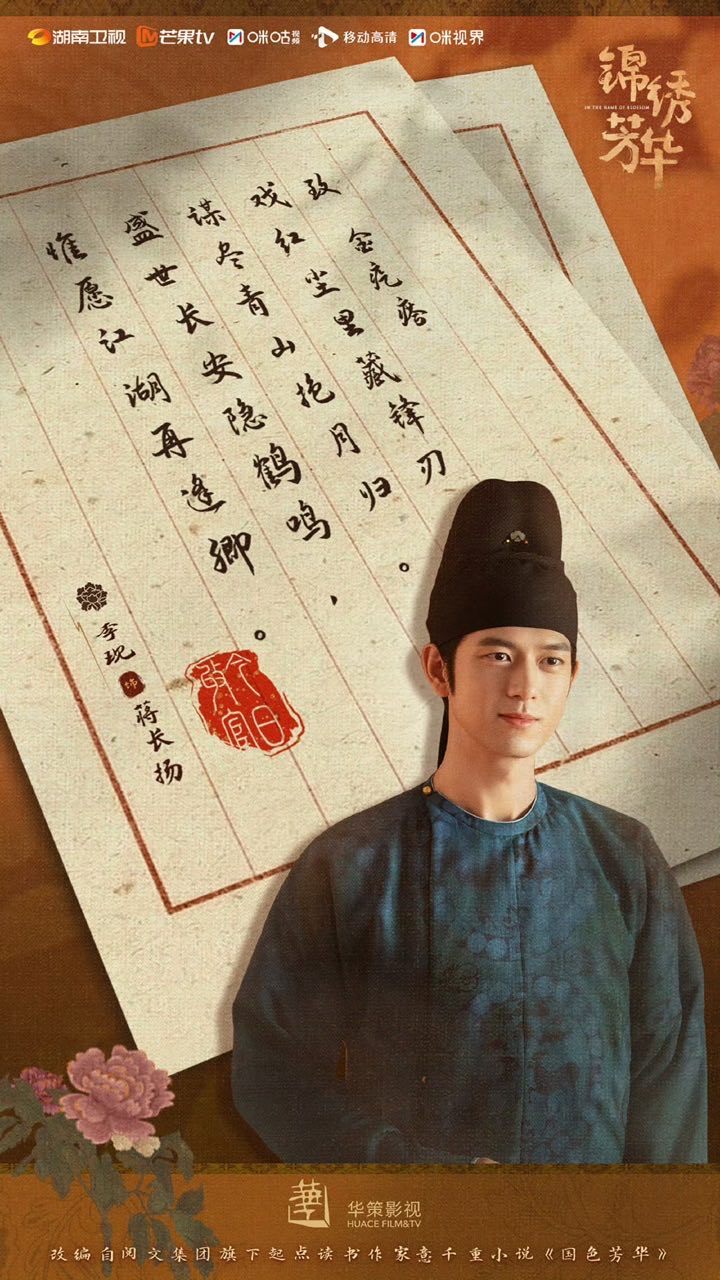 湖南卫视 芒果tv 咪咕视频 移动高清 咪视界
锦绣芳华
IN THE NAME OF BLOSSOM
致金疙瘩
戏红尘里藏锋刃
谋尽青山抱月归。
盛世长安隐鹤鸣，
惟愿江湖再逢卿。
李现 饰 蒋长扬
華 华策影视
HUACE FILM&TV
改编自阅文集团旗下起点读书作家意千重小说《国色芳华》